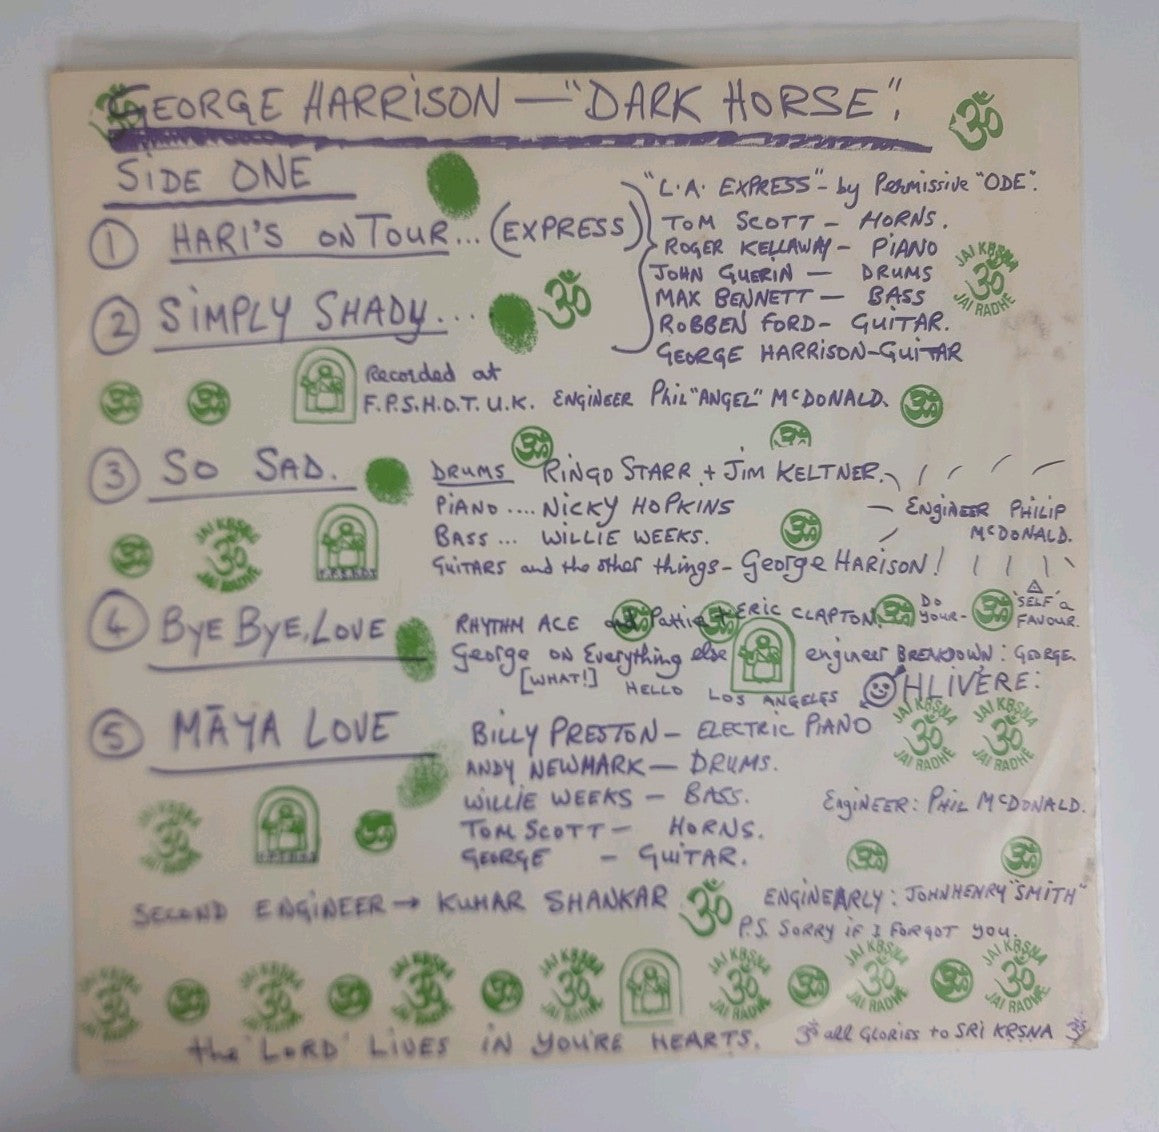 GEORGE HARRISON — "DARK HORSE".
SIDE ONE
① HARI'S ON TOUR... (EXPRESS)
② SIMPLY SHADY...
"L.A. EXPRESS" - by Permissive "ODE".
TOM SCOTT — HORNS.
ROGER KELLAWAY — PIANO
JOHN GUERIN — DRUMS
MAX BENNETT — BASS
ROBBEN FORD - GUITAR.
GEORGE HARRISON - GUITAR
JAI KRSNA
ॐ
JAI RADHE
Recorded at
F.P.S.H.O.T. U.K. ENGINEER Phil "ANGEL" McDONALD.
③ SO SAD.
DRUMS RINGO STARR + JIM KELTNER.
PIANO .... NICKY HOPKINS
BASS ... WILLIE WEEKS.
GUITARS and the other things - George HARISON!
ENGINEER PHILIP
McDONALD.
JAI KRSNA
ॐ
JAI RADHE
F.P.S.H.O.T.
④ BYE BYE, LOVE
RHYTHM ACE and Pattie + ERIC CLAPTON. DO YOUR- 'SELF' a FAVOUR.
George on Everything else engineer BREAKDOWN: GEORGE.
[WHAT!] HELLO LOS ANGELES OHLIVERE:
⑤ MĀYA LOVE
BILLY PRESTON — ELECTRIC PIANO
ANDY NEWMARK — DRUMS.
WILLIE WEEKS — BASS.
TOM SCOTT — HORNS.
GEORGE — GUITAR.
JAI KRSNA JAI KRSNA
ॐ ॐ
JAI RADHE JAI RADHE
ENGINEER: PHIL McDONALD.
SECOND ENGINEER → KUMAR SHANKAR
ENGINEARLY: JOHN HENRY "SMITH"
P.S. SORRY IF I FORGOT YOU.
JAI KRSNA JAI KRSNA JAI KRSNA JAI KRSNA
ॐ ॐ ॐ ॐ
JAI RADHE JAI RADHE JAI RADHE JAI RADHE
the 'LORD' LIVES IN YOU'RE HEARTS. ॐ all GLORIES to SRI KRSNA ॐ